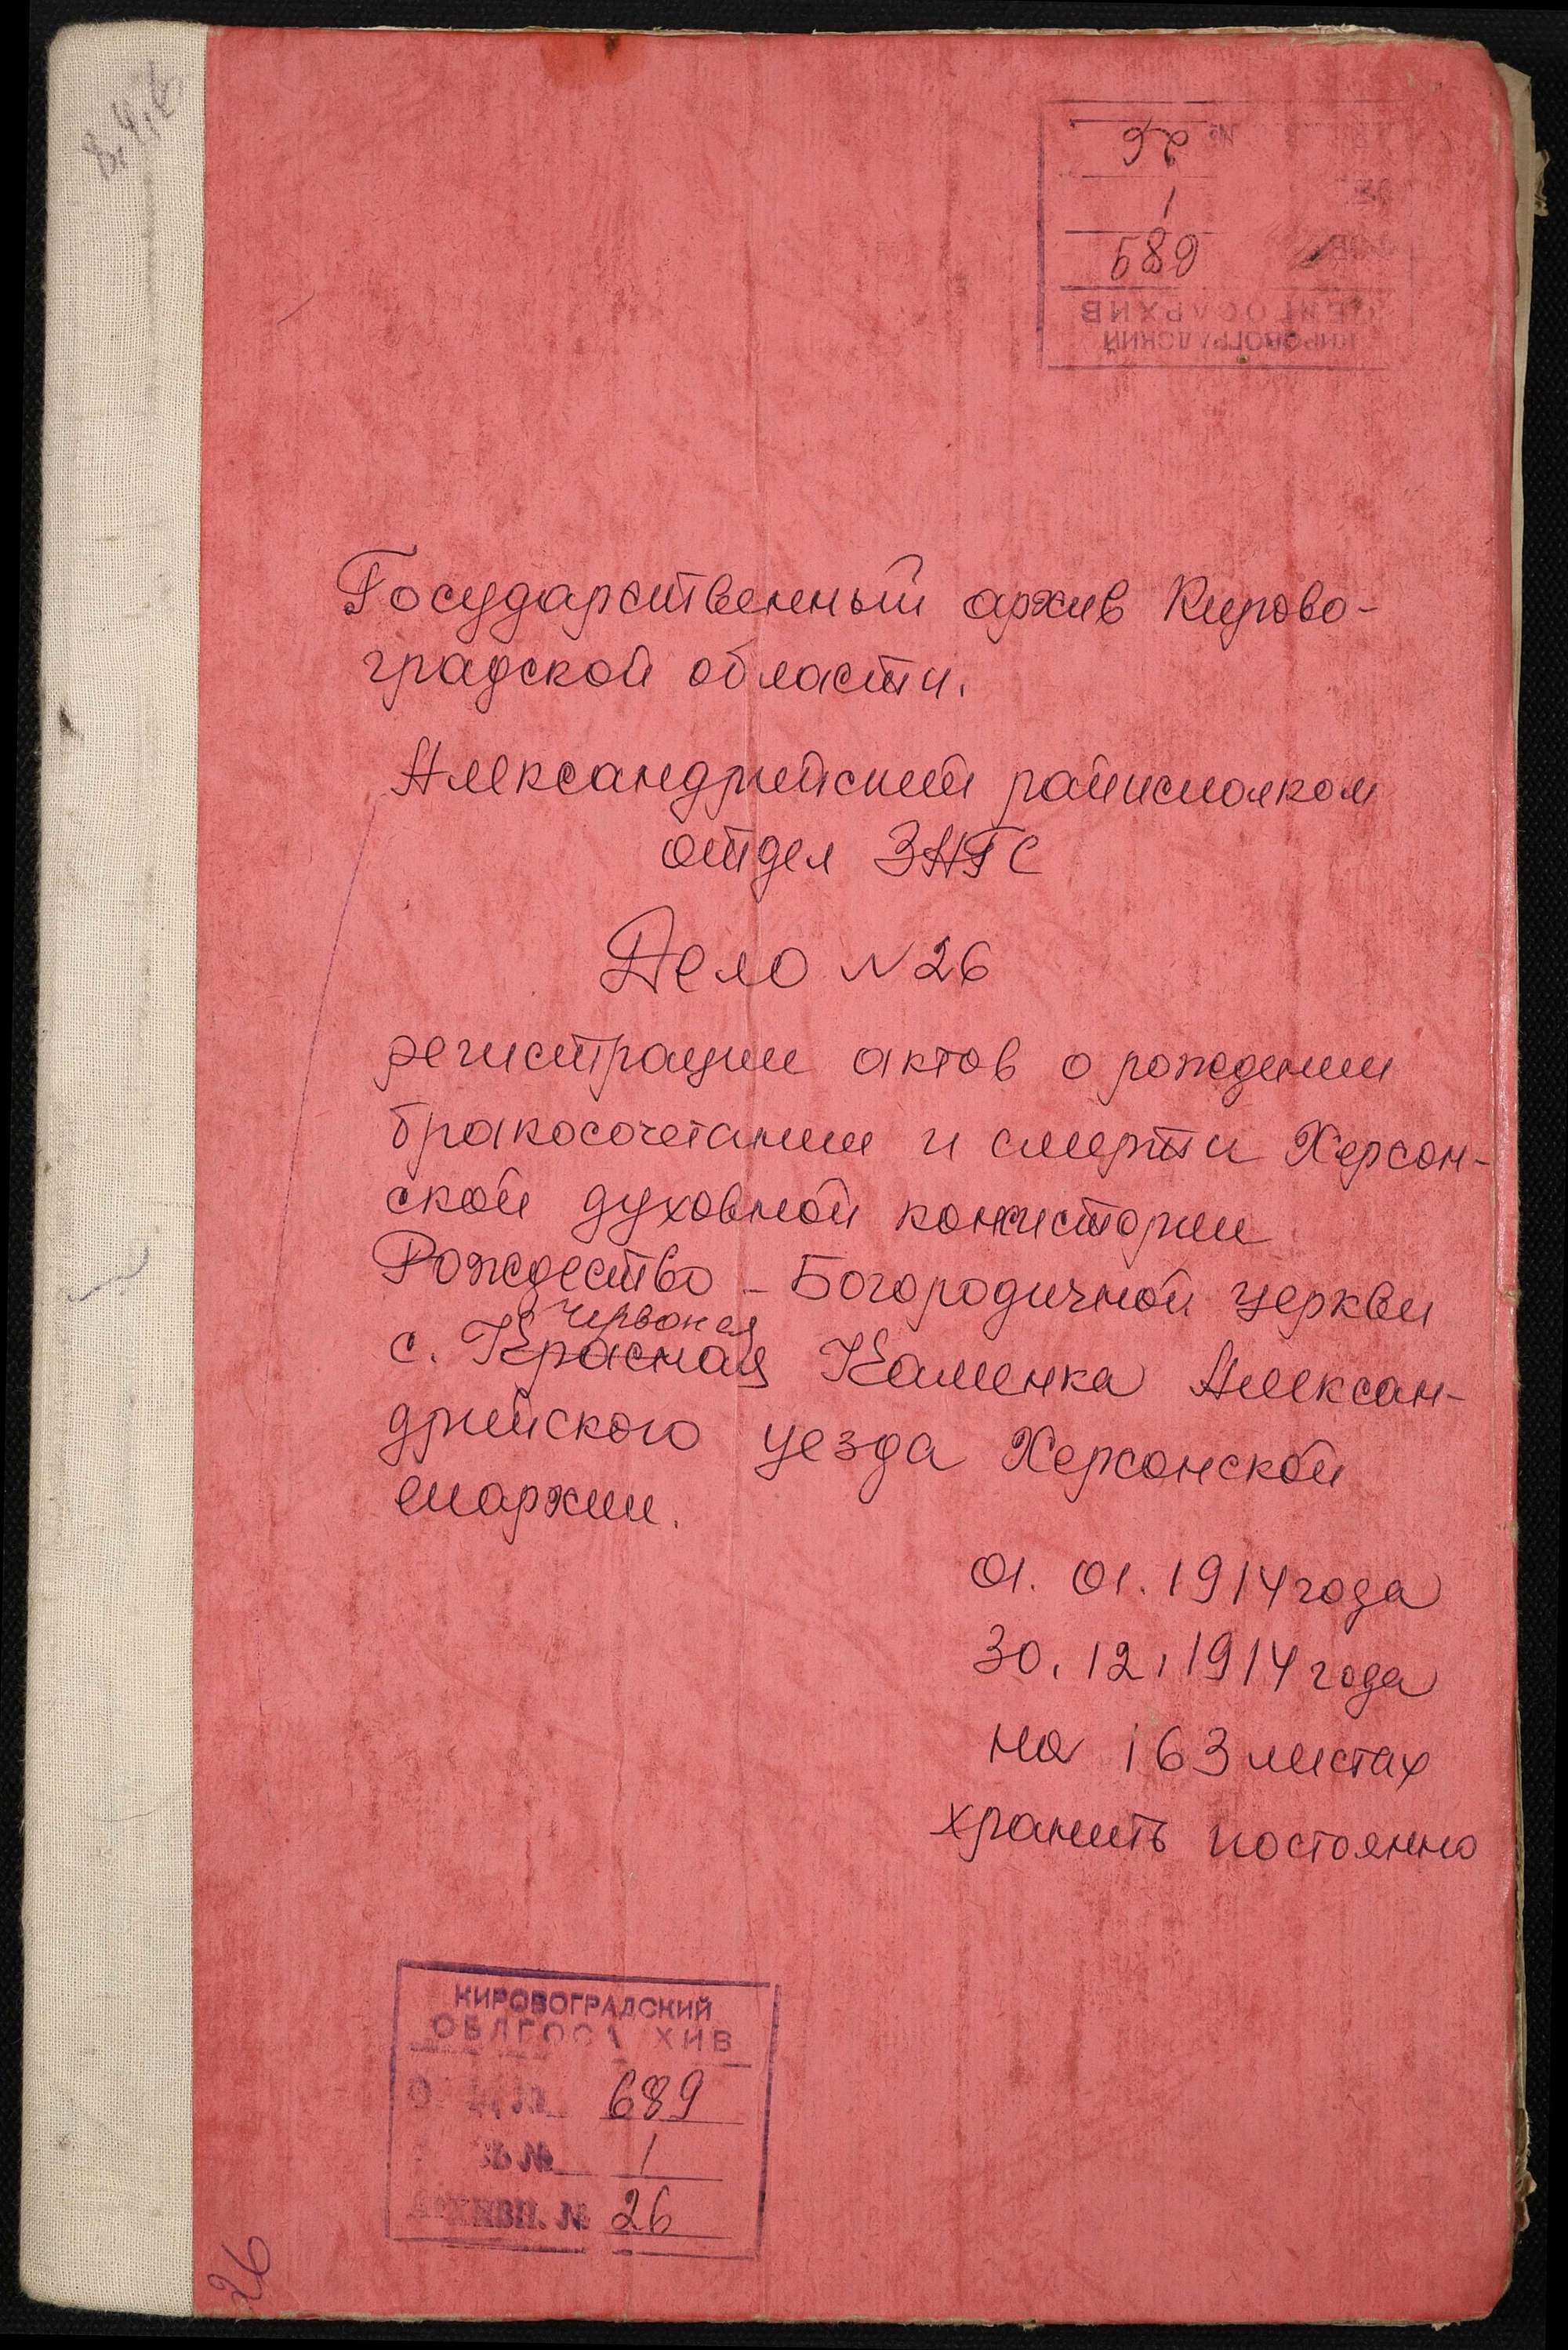 689
1
26
Государственный архив Кирово-
градской области.
Александрийский райисполком
отдел ЗАГС
Дело N 26
регистрации актов о рождении
бракосочетании и смерти Херсон-
ской духовной консистории
Рождество - Богородичной церкви
Червоная
с. Красная Каменка Алексан-
дрийского уезда Херсонской
епархии.
01. 01. 1914 года
30. 12. 1914 года
на 163 листах
хранить постоянно
КИРОВОГРАДСКИЙ
ОБЛГОСА ХИВ
689
№ 1
АРХИВН. № 26
26